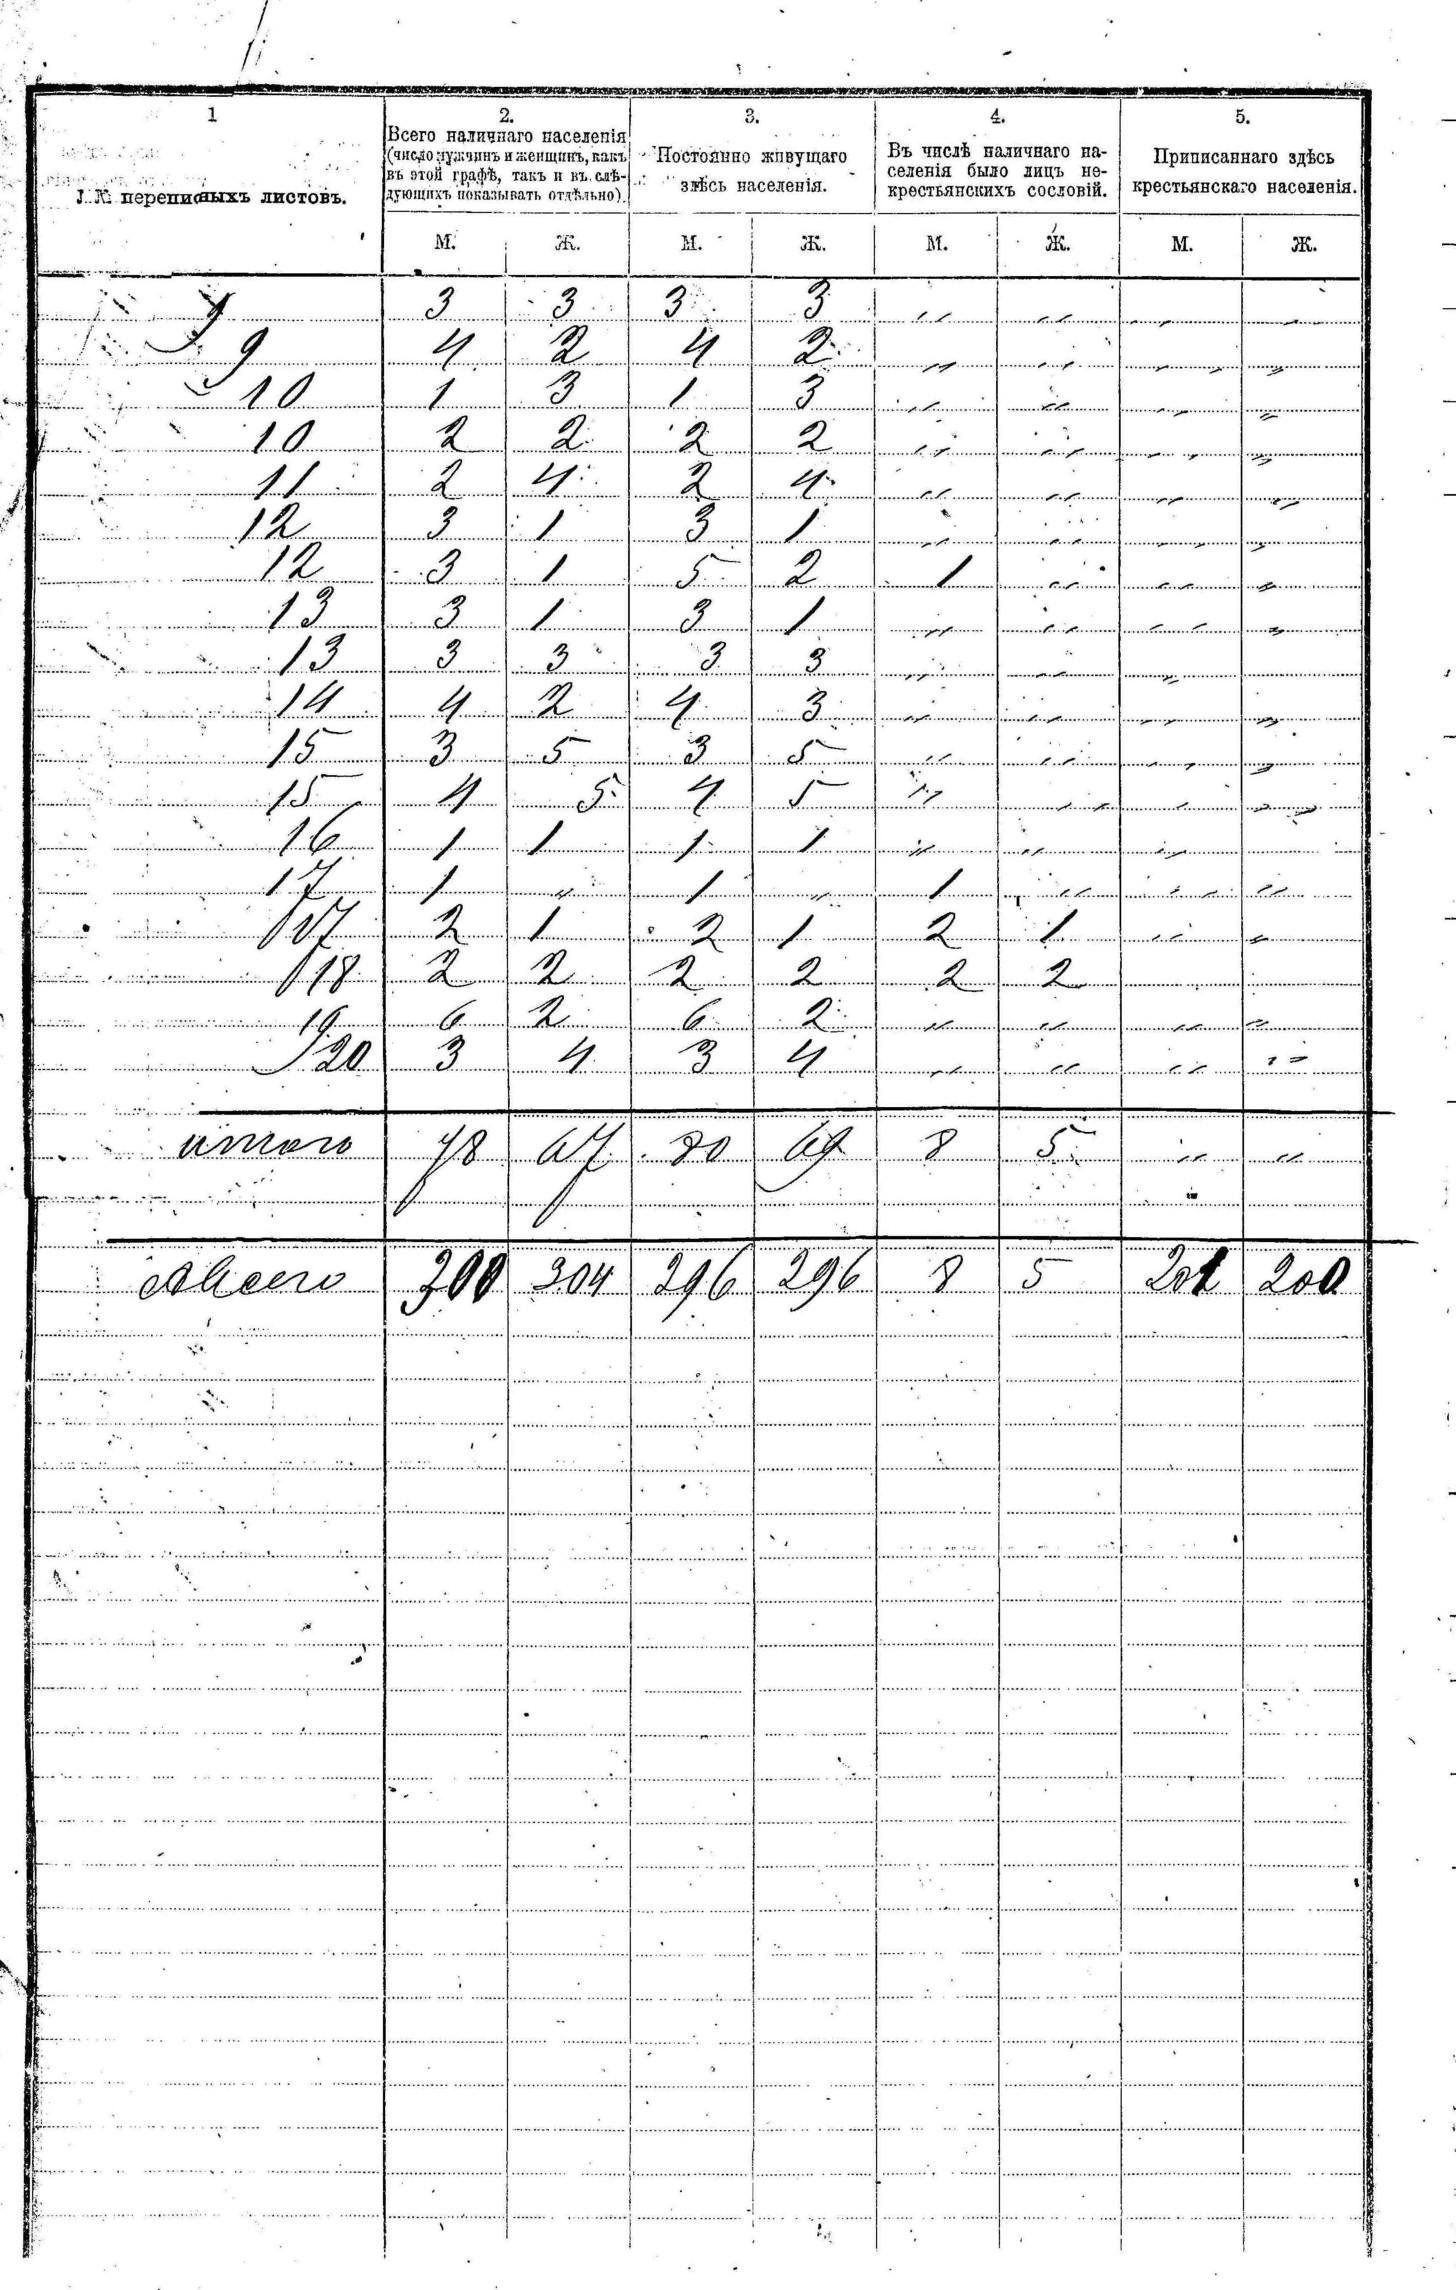 1 2. 3. 4. 5.
№№ переписныхъ листовъ.
Всего наличнаго населенія
(число мужчинъ и женщинъ, какъ
въ этой графѣ, такъ и въ слѣ-
дующихъ показывать отдѣльно).
Постоянно живущаго
здѣсь населенія.
Въ числѣ наличнаго на-
селенія было лицъ не-
крестьянскихъ сословій.
Приписаннаго здѣсь
крестьянскаго населенія.
М. Ж. М. Ж. М. Ж. М. Ж.
9 3 3 3 3 " " " "
9 4 2 4 2 " " " "
10 1 3 1 3 " " " "
10 2 2 2 2 " " " "
11 2 4 2 4 " " " "
12 3 1 3 1 " " " "
12 3 1 5 2 1 " " "
13 3 1 3 1 " " " "
13 3 3 3 3 " " "
14 4 2 4 3 " " " "
15 3 5 3 5 " " " "
15 4 5 4 5 " " " "
16 1 1 1 1 " " "
17 1 " 1 " 1 " " "
17 2 1 2 1 2 1 " "
18 2 2 2 2 2 2
19 6 2 6 2 " " " "
20 3 4 3 4 " " " "
итого 78 67 80 69 8 5 " "
Всего 300 304 296 296 8 5 201 200